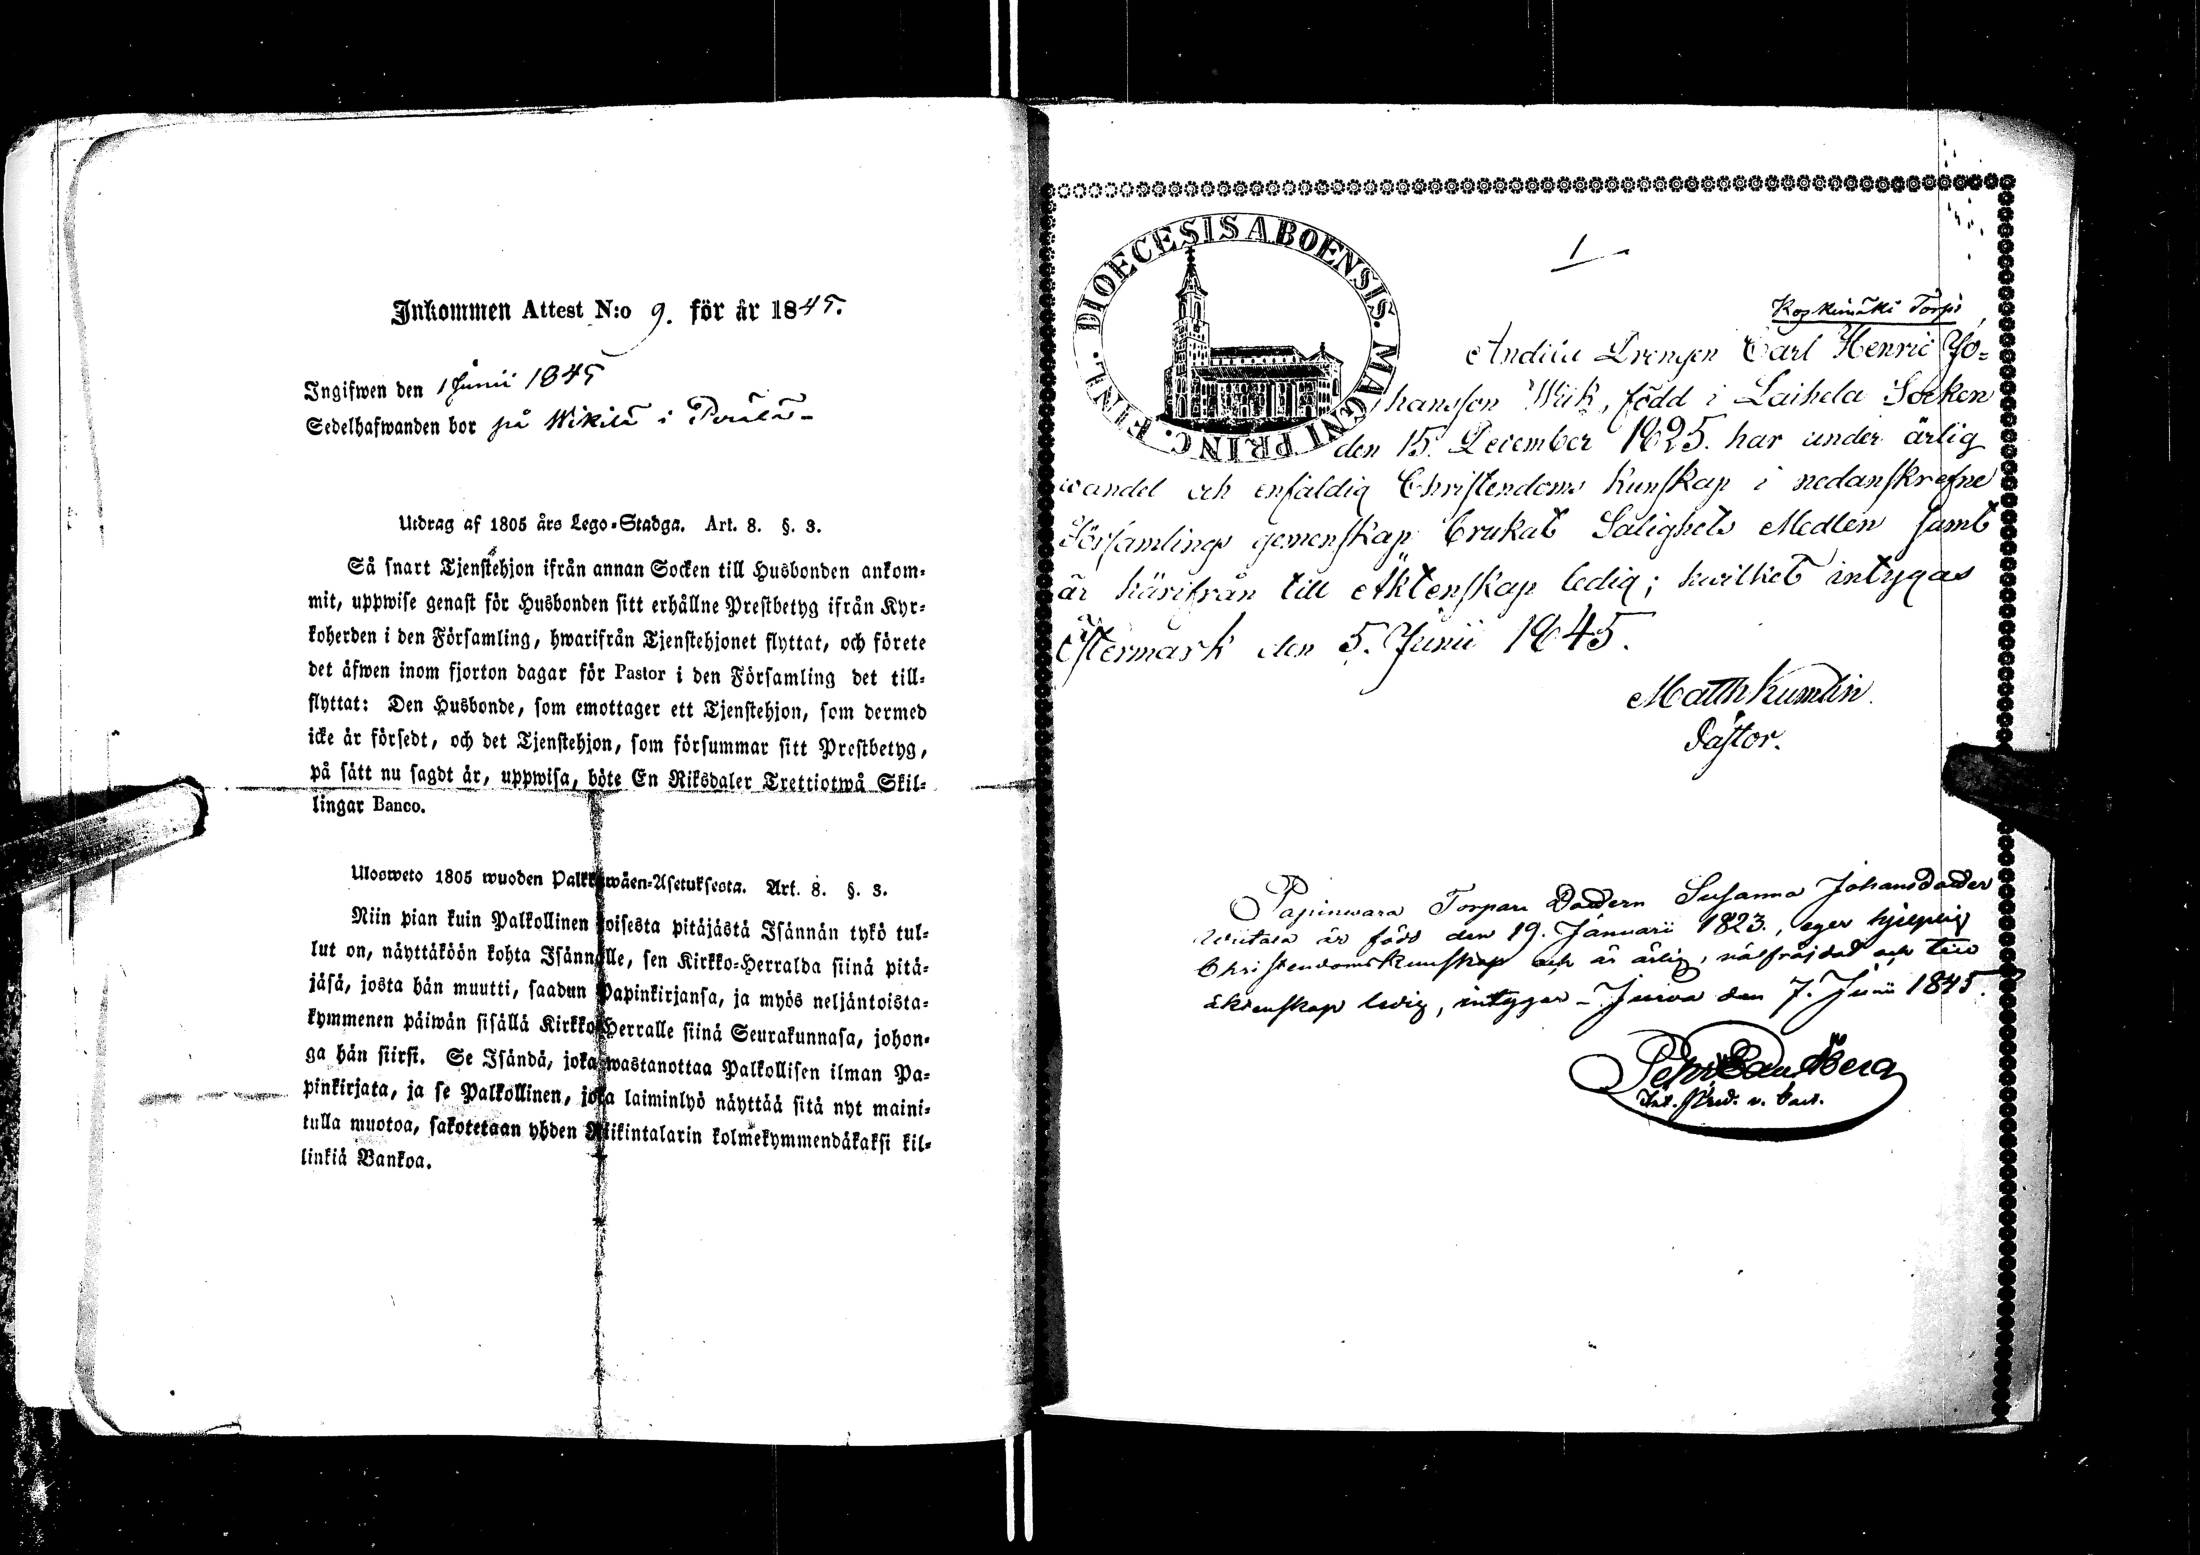 Inkommen Attest N:o 9. för år 1845.
Ingifwen den 1 Junii 1845
Sedelhafwanden bor på Wikilä i
Utdrag af 1805 års Lego-Stadga. Art. 8. §. 3.
Så snart Tjenstehjon ifrån annan Socken till Husbonden ankom-
mit, uppwise genast för Husbonden sitt erhållne Prestbetyg ifrån Kyr-
koherden i den Församling, hwarifrån Tjenstehjonet flyttat, och förete
det äfwen inom fjorton dagar för Pastor i den Församling det till-
flyttat: Den Husbonde, som emottager ett Tjenstehjon, som dermed
icke är försedt, och det Tjenstehjon, som försummar sitt Prestbetyg,
på sätt nu sagdt är, uppwisa, böte En Riksdaler Trettiotwå Skil-
lingar Banco.
Ulosweto 1805 wuoden Palkkawäen-Asetuksesta. Art. 8. §. 3.
Niin pian kuin Palkollinen toisesta pitäjästä Isännän tykö tul-
lut on, näyttäköön kohta Isännälle, sen Kirkko-Herralda siinä pitä-
jäsä, josta hän muutti, saadun Papinkirjansa, ja myös neljäntoista-
kymmenen päiwän sisällä Kirkko-Herralle siinä Seurakunnasa, johon-
ga hän siirsi. Se Isändä, joka wastanottaa Palkollisen ilman Pa-
pinkirjata, ja se Palkollinen, joka laiminlyö näyttää sitä nyt maini-
tulla muotoa, sakotetaan yhden Riikintalarin kolmekymmendäkaksi kil-
linkiä Bankoa.
DIOECESIS ABOENSIS. MAGNI PRINC. FINL.
1
Koskimäki Torp
Drengen Carl Henric Jo-
hansson Wiik, född i Laihela Socken
den 15. December 1825. har under ärlig
wandel och enfaldig Christendoms Kunskap i nedanskrefne
Församlings gemenskap brukat Salighets Medlen samt
är härifrån till Äktenskap ledig; hwilket intygas
Östermark den 5. Junii 1845.
Matth Kumlin
Pastor.
Papinwara Torpare Dottern Susanna Johansdotter
är född den 19. Januarii 1823., eger hjelplig
Christendomskunskap och är ärlig, wälfräjdad och till
äktenskap ledig, intygar - Jurva den 7. Junii 1845.
Pehr Sandberg